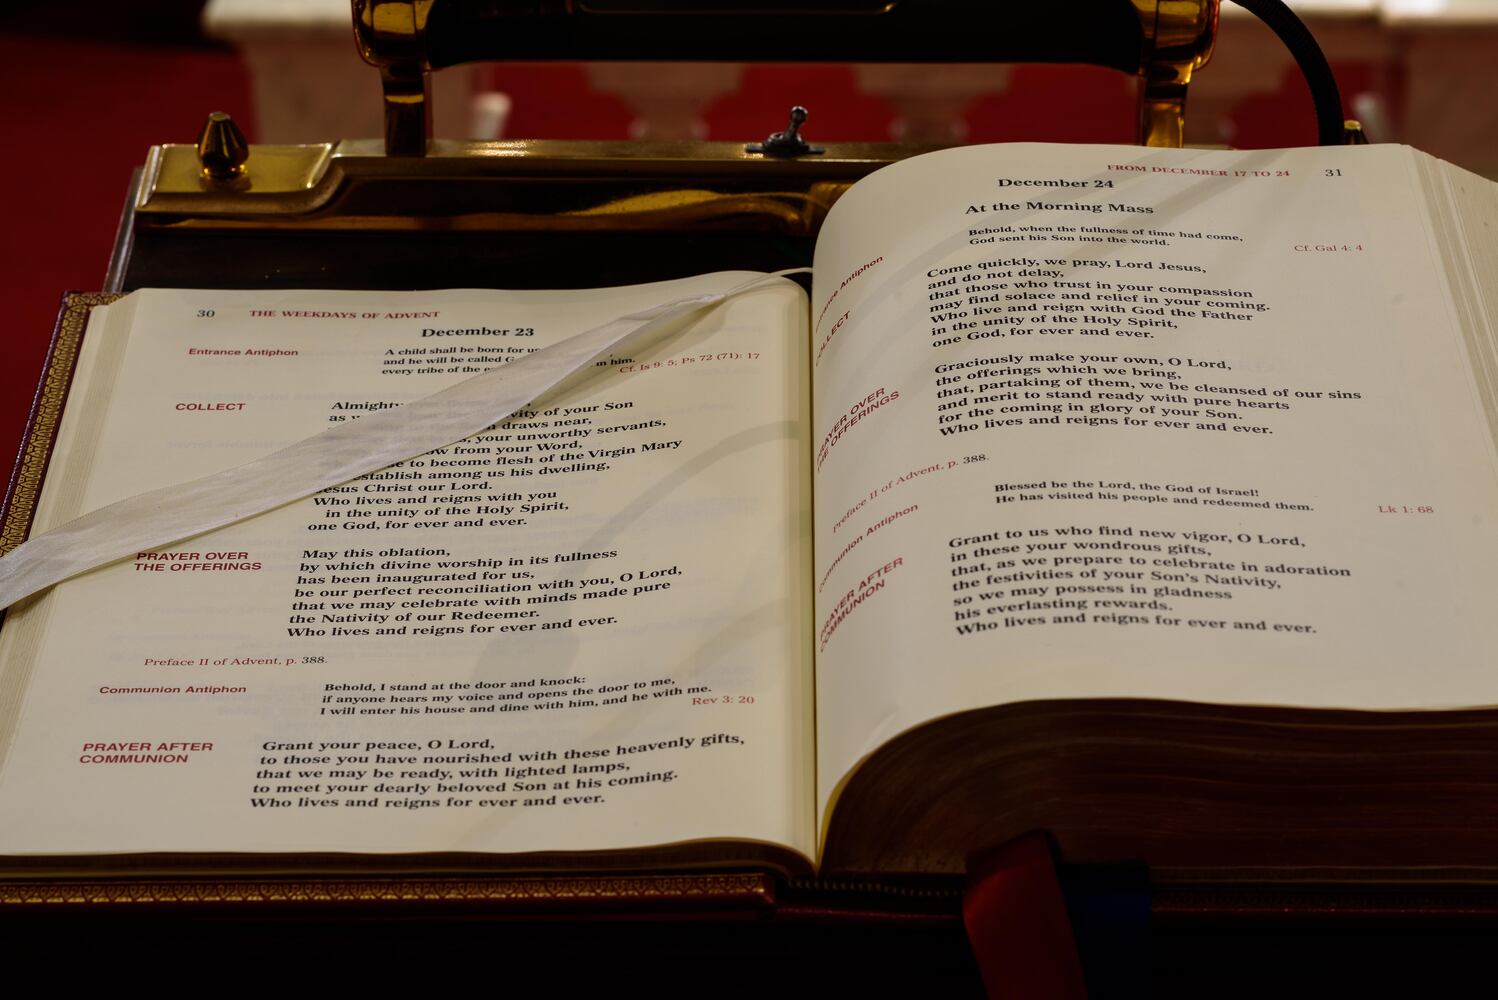 30 THE WEEKDAYS OF ADVENT
December 23
Entrance Antiphon
A child shall be born for
and he will be called him.
every tribe of the
Cf. Is 9: 5; Ps 72 (71): 17
COLLECT
of your Son
as draws near,
your unworthy servants,
from your Word,
to become flesh of the Virgin Mary
establish among us his dwelling,
Jesus Christ our Lord.
Who lives and reigns with you
in the unity of the Holy Spirit,
one God, for ever and ever.
PRAYER OVER
THE OFFERINGS
May this oblation,
by which divine worship in its fullness
has been inaugurated for us,
be our perfect reconciliation with you, O Lord,
that we may celebrate with minds made pure
the Nativity of our Redeemer.
Who lives and reigns for ever and ever.
Preface II of Advent, p. 388.
Communion Antiphon
Behold, I stand at the door and knock:
if anyone hears my voice and opens the door to me,
I will enter his house and dine with him, and he with me.
Rev 3: 20
PRAYER AFTER
COMMUNION
Grant your peace, O Lord,
to those you have nourished with these heavenly gifts,
that we may be ready, with lighted lamps,
to meet your dearly beloved Son at his coming.
Who lives and reigns for ever and ever.
FROM DECEMBER 17 TO 24 31
December 24
At the Morning Mass
Antiphon
Behold, when the fullness of time had come,
God sent his Son into the world.
Cf. Gal 4: 4
COLLECT
Come quickly, we pray, Lord Jesus,
and do not delay,
that those who trust in your compassion
may find solace and relief in your coming.
Who live and reign with God the Father
in the unity of the Holy Spirit,
one God, for ever and ever.
PRAYER OVER
THE OFFERINGS
Graciously make your own, O Lord,
the offerings which we bring,
that, partaking of them, we be cleansed of our sins
and merit to stand ready with pure hearts
for the coming in glory of your Son.
Who lives and reigns for ever and ever.
Preface II of Advent, p. 388.
Communion Antiphon
Blessed be the Lord, the God of Israel!
He has visited his people and redeemed them.
Lk 1: 68
PRAYER AFTER
COMMUNION
Grant to us who find new vigor, O Lord,
in these your wondrous gifts,
that, as we prepare to celebrate in adoration
the festivities of your Son's Nativity,
so we may possess in gladness
his everlasting rewards.
Who lives and reigns for ever and ever.